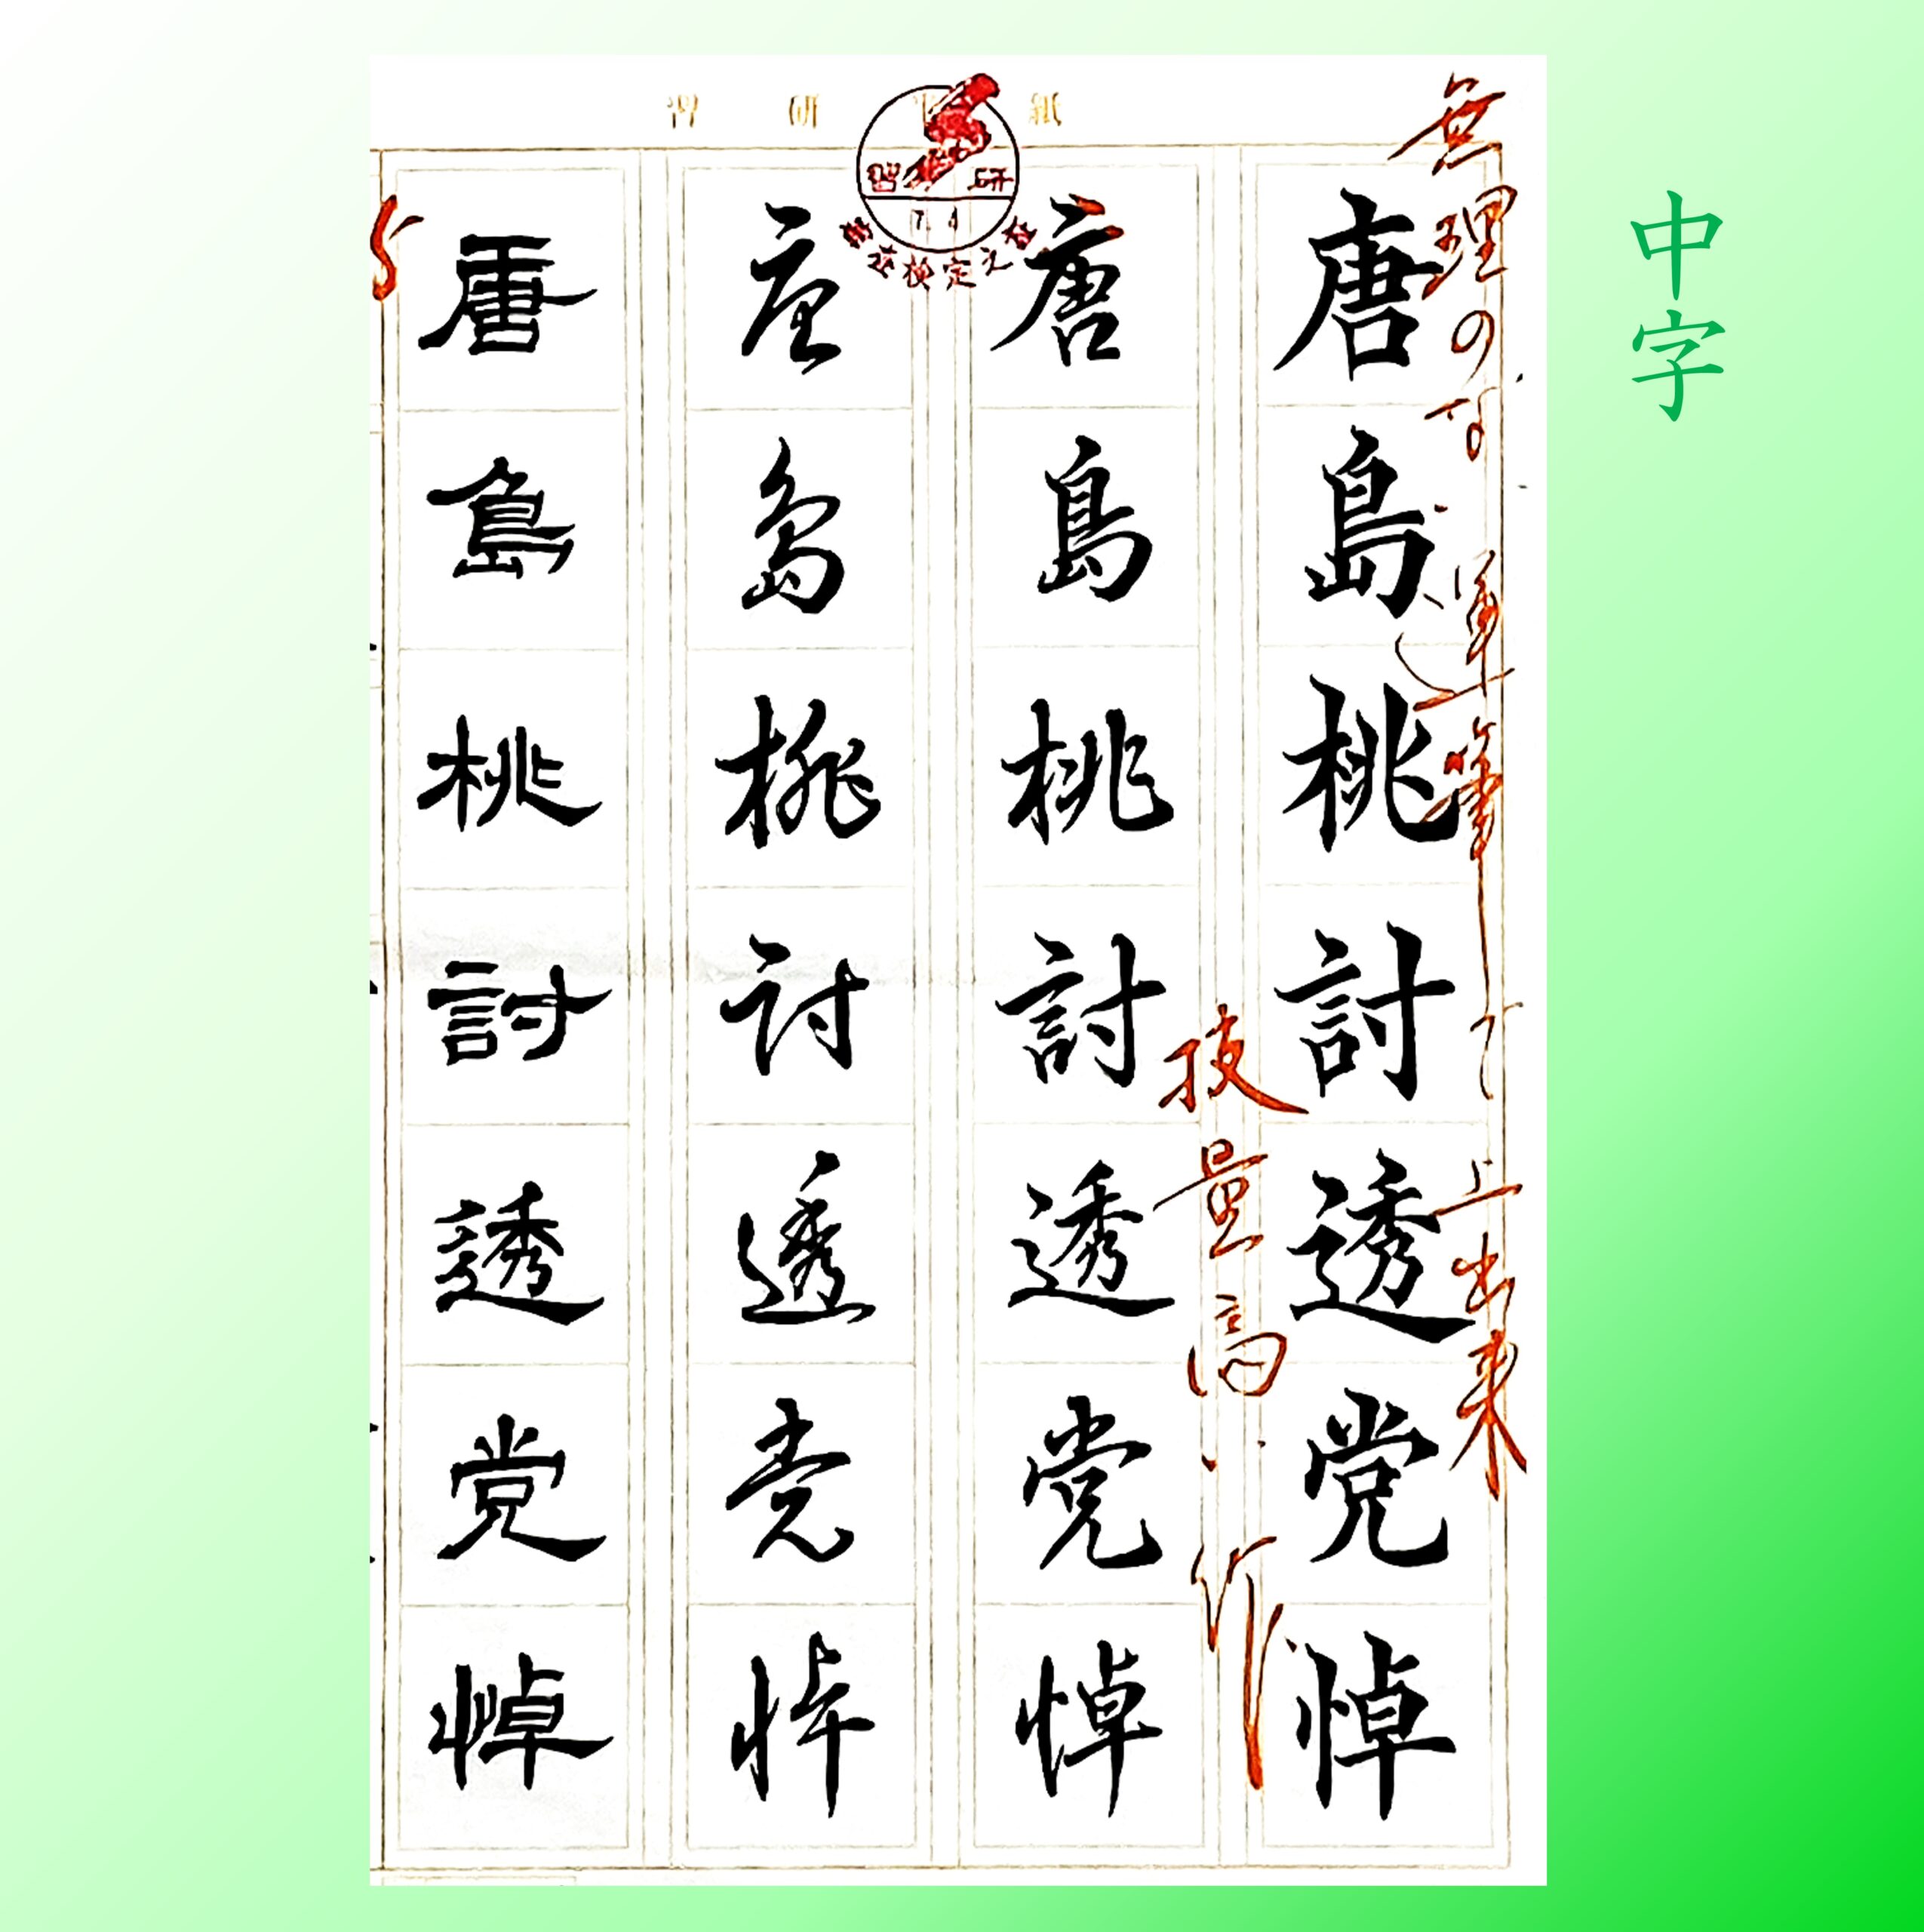 中字
無理のない運筆で上出来
習研 紙
習研
7.4
唐島桃討透党悼
技量高い作
唐島桃討透党悼
唐島桃討透党悼
唐島桃討透党悼
5